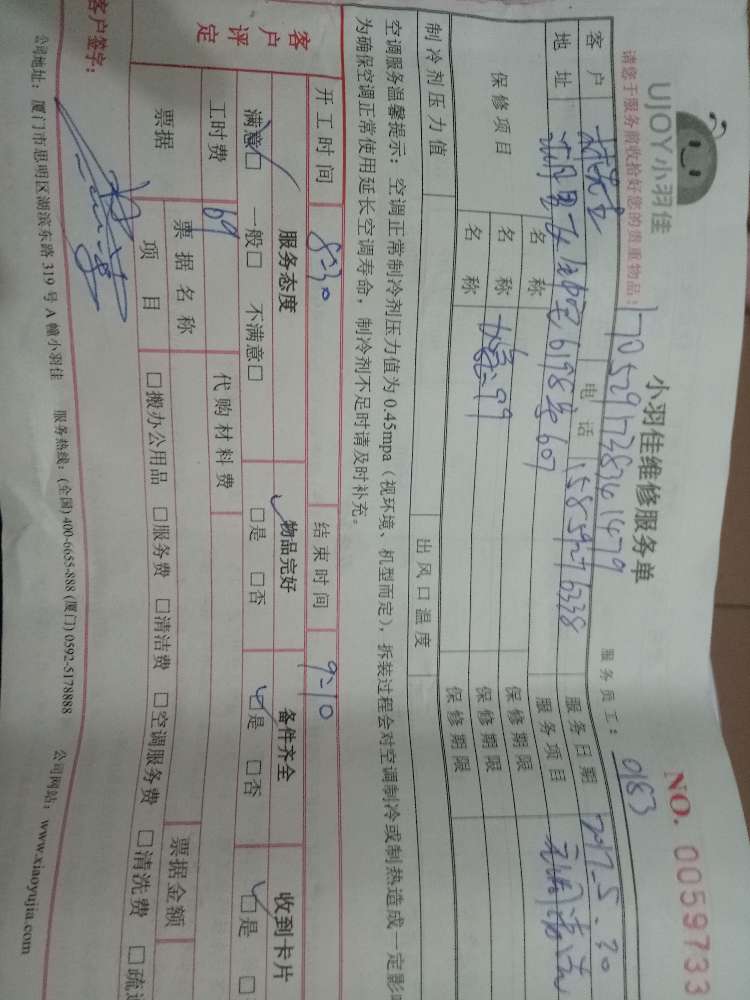 UJOY小羽佳
小羽佳维修服务单
NO. 0059733
请您于服务前收拾好您的贵重物品!
17052917383741479
服务员工: 0183
客户 林先生 电话 15859276338 服务日期 2017.5.30
地址 607 服务项目 空调清洗
保修项目 名称 保修期限
名称 保修期限
名称 保修期限
制冷剂压力值 出风口温度
空调服务温馨提示: 空调正常制冷剂压力值为 0.45mpa(视环境、机型而定), 拆装过程会对空调制冷或制热造成一定影
为确保空调正常使用延长空调寿命, 制冷剂不足时请及时补充。
开工时间 8:30 结束时间 9:10
客户评定 服务态度 物品完好 备件齐全 收到卡片
满意□ 一般□ 不满意□ □是 □否 □是 □否 □是 □
工时费 69 代购材料费
票据 票据名称 票据金额
项目 □搬办公用品 □服务费 □清洁费 □空调服务费 □清洗费 □疏
客户签字:
公司地址: 厦门市思明区湖滨东路 319 号 A 幢小羽佳 服务热线: (全国) 400-6655-888 (厦门) 0592-5178888 公司网站: www.xiaoyujia.com